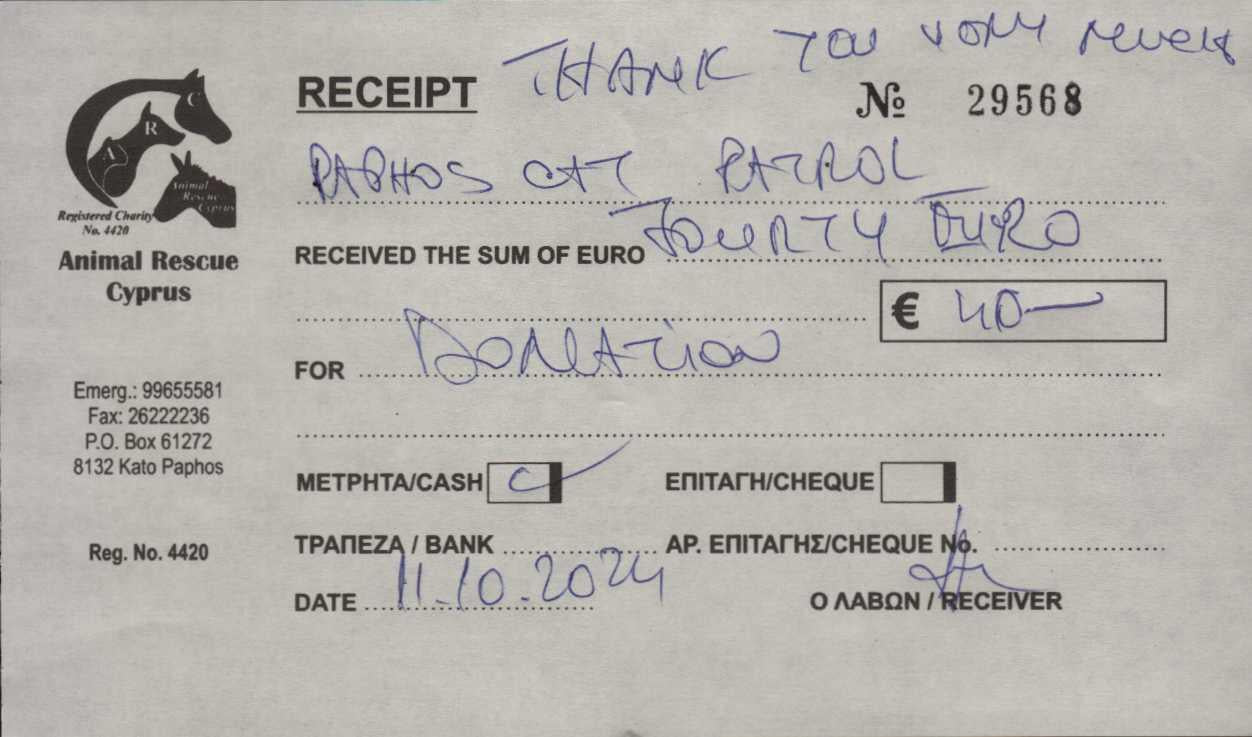 THANK YOU VERY MUCH
RECEIPT
№ 29568
A R C
Animal Rescue Cyprus
Registered Charity
No. 4420
Animal Rescue
Cyprus
PAPHOS CAT PATROL
RECEIVED THE SUM OF EURO FOURTY EURO
€ 40—
FOR DONATION
Emerg.: 99655581
Fax: 26222236
P.O. Box 61272
8132 Kato Paphos
ΜΕΤΡΗΤΑ/CASH ✓ ΕΠΙΤΑΓΗ/CHEQUE
Reg. No. 4420
ΤΡΑΠΕΖΑ / BANK ΑΡ. ΕΠΙΤΑΓΗΣ/CHEQUE No.
DATE 11.10.2024
Ο ΛΑΒΩΝ / RECEIVER